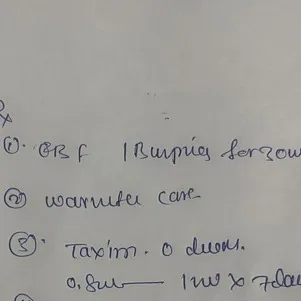 ①. EBF / Burping for 30 
② warmth care
③. Taxim. O drops.
0.8ml — 1 x 7 days